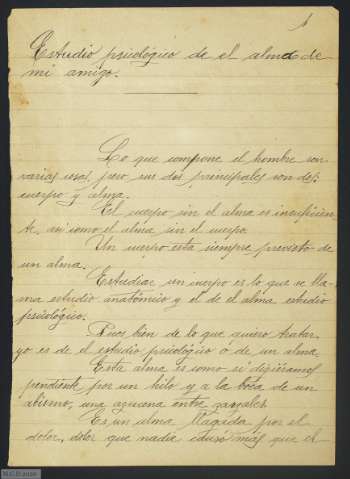 1
Estudio psicológico de el alma de
mi amigo.
Lo que compone el hombre son
varias cosas, pero sus dos principales son dos:
cuerpo y alma.
El cuerpo sin el alma es insuficien-
te, asi como el alma sin el cuerpo.
Un cuerpo esta siempre provisto de
un alma.
Estudiar un cuerpo es lo que se lla-
ma estudio anatómico y el de el alma estudio
psicológico.
Pues bien de lo que quiero tratar
yo es de el estudio psicológico ó de un alma.
Esta alma es como si dijeramos
pendiente por un hilo y a la boca de un
abismo, una azucena entre zarzales.
Es un alma llagada por el
dolor, dolor que nadie causo mas que el